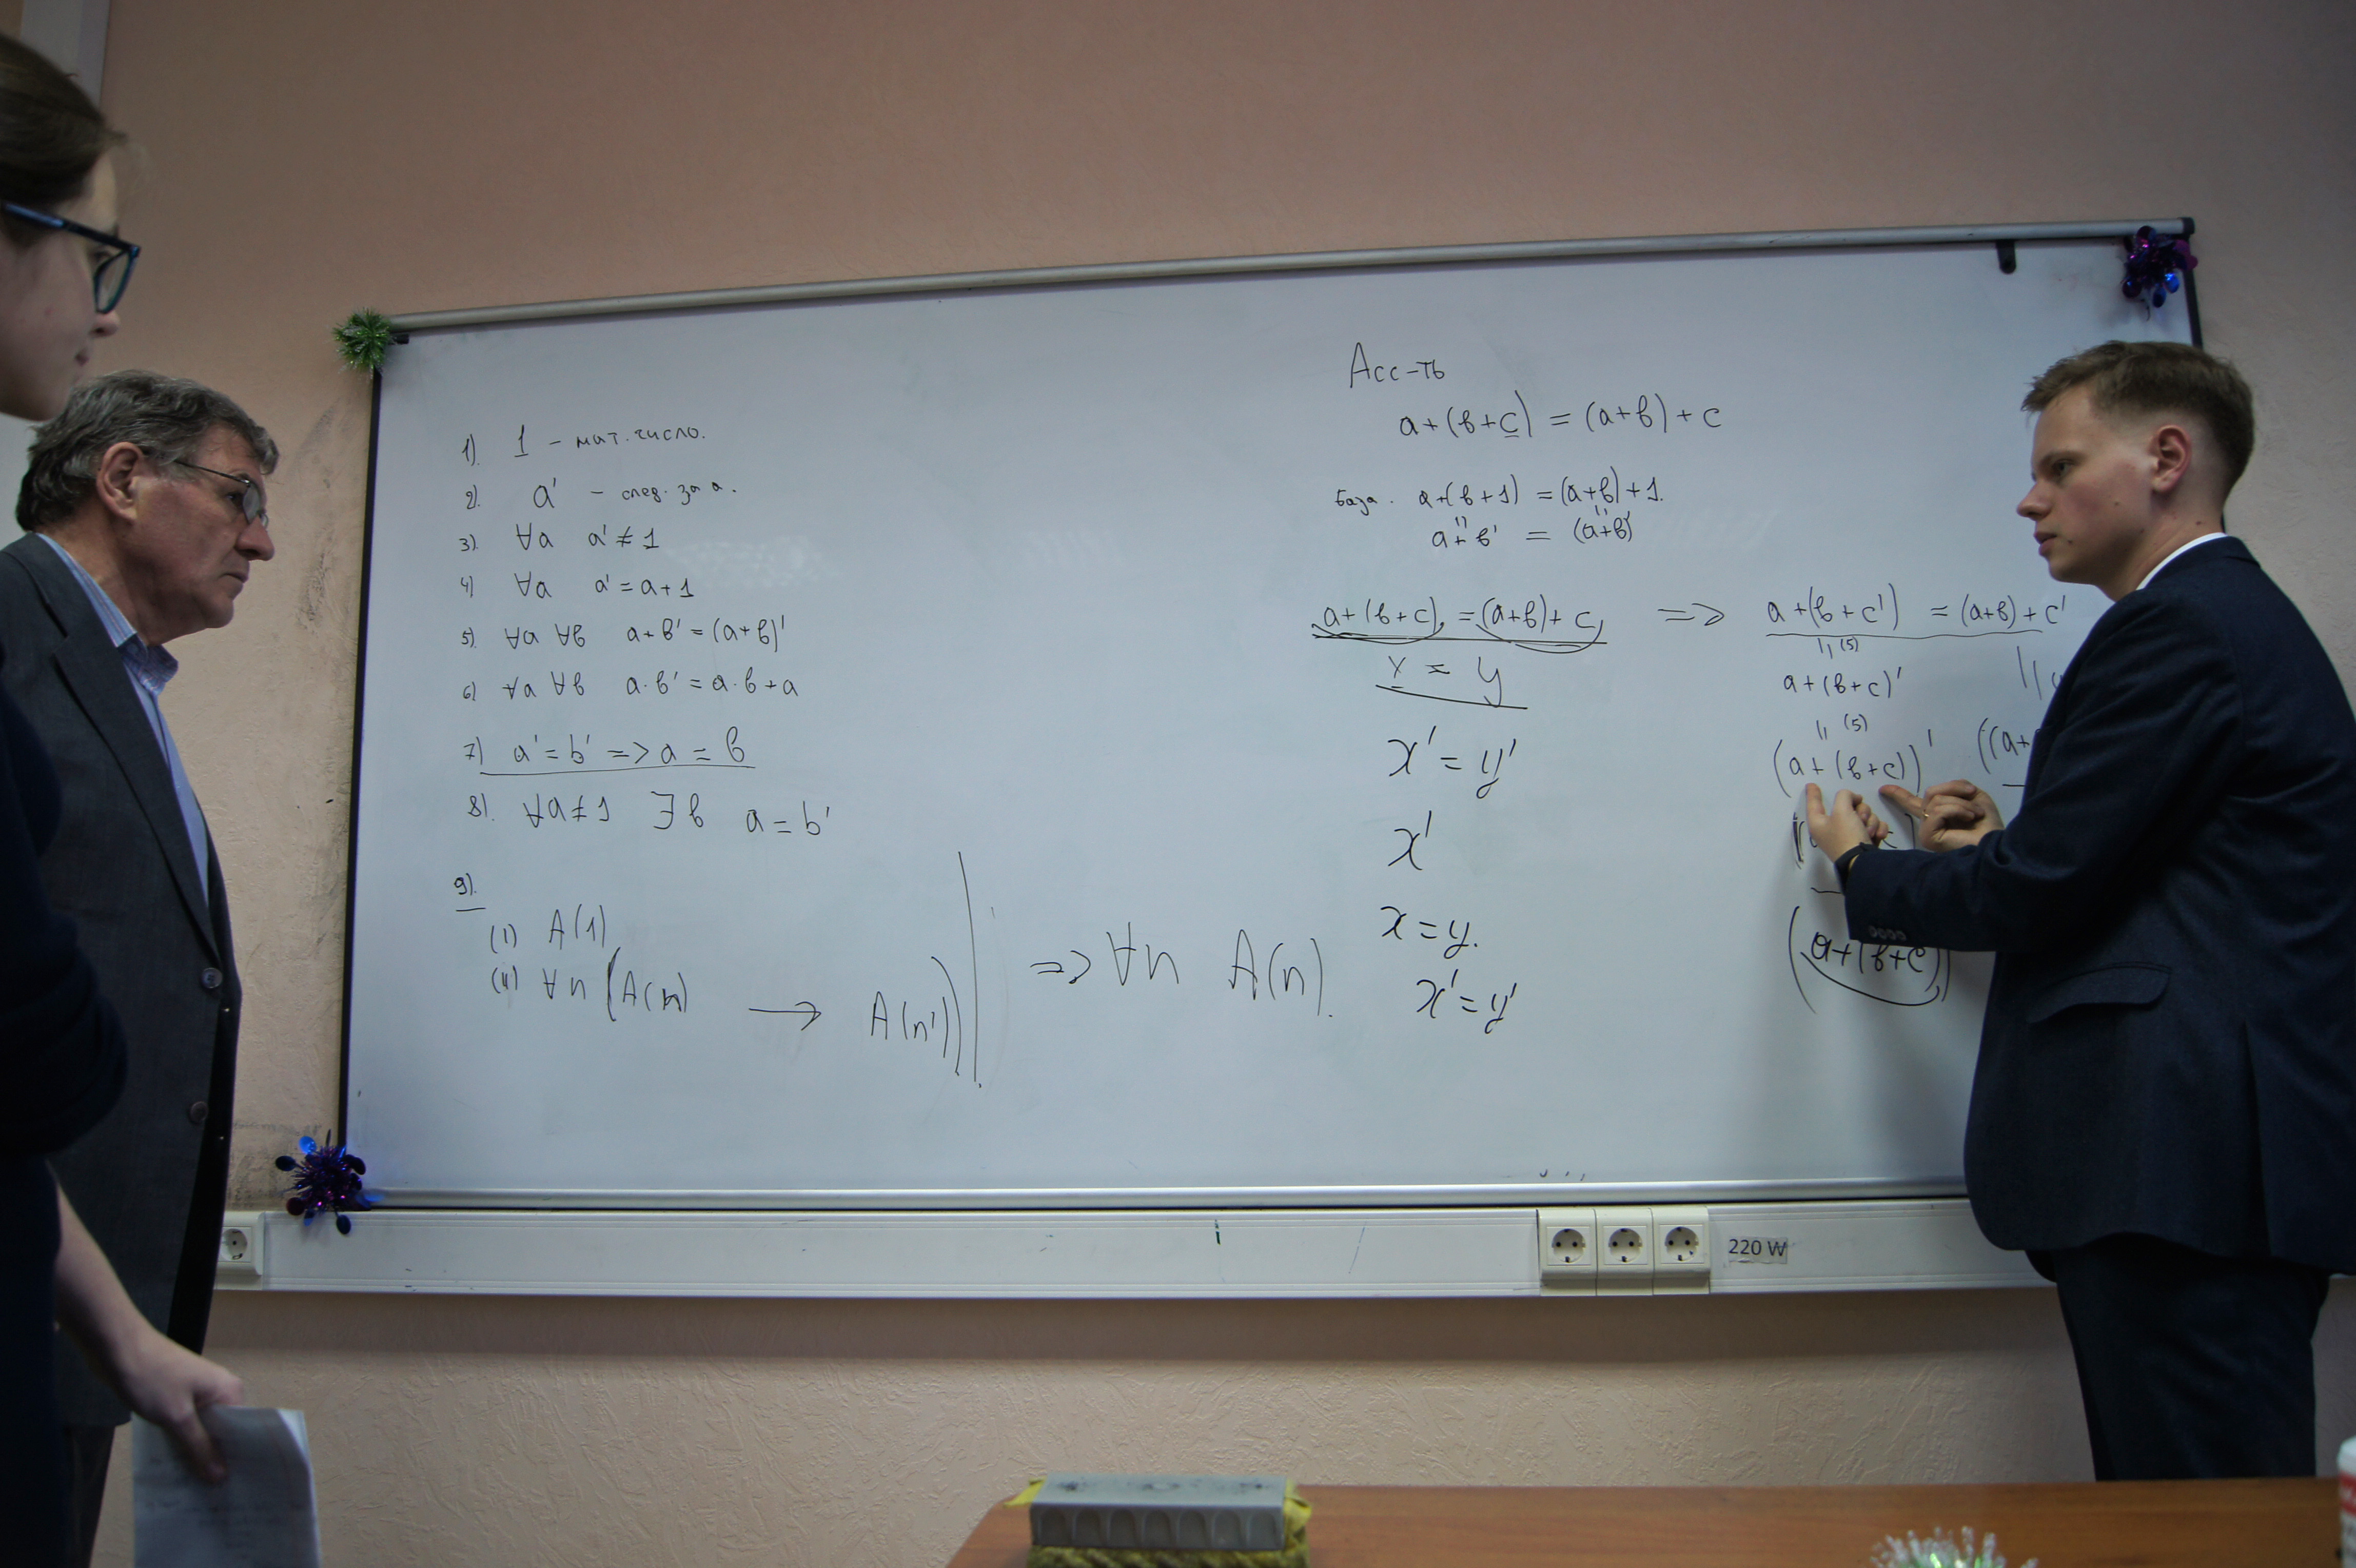 1) 1 – нат. число.
2) a' – след. за a.
3) ∀a a' ≠ 1
4) ∀a a' = a+1
5) ∀a ∀в a+в' = (a+в)'
6) ∀a ∀в a·в' = a·в+a
7) a' = b' => a = в
8) ∀a≠1 ∃в a = b'
9).
(i) A(1)
(ii) ∀n (A(n) → A(n')) => ∀n A(n).
Асс-ть
a+(в+c) = (a+в)+c
База. a+(в+1) = (a+в)+1.
a+в' = (a+в)'
a+(в+c) = (a+в)+c => a+(в+c') = (a+в)+c'
x = y
x' = y'
x'
x = y.
x' = y'
(5)
a+(в+c)'
(5)
(a+(в+c))' ((a+
(a+(в+c))
220 W